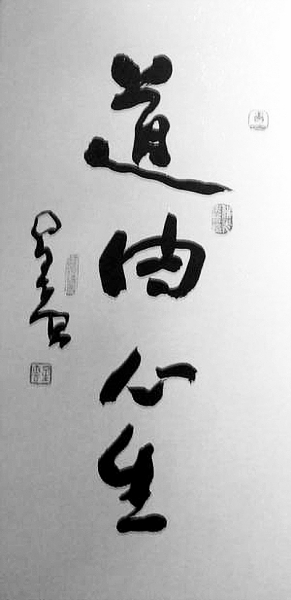 道由心生